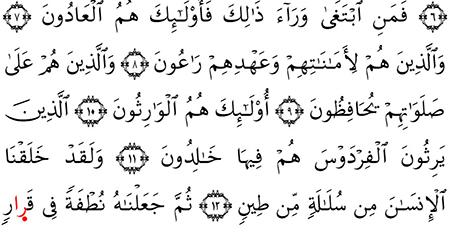 ﴿٦﴾ فَمَنِ ٱبْتَغَىٰ وَرَآءَ ذَٰلِكَ فَأُو۟لَٰٓئِكَ هُمُ ٱلْعَادُونَ ﴿٧﴾
وَٱلَّذِينَ هُمْ لِأَمَٰنَٰتِهِمْ وَعَهْدِهِمْ رَٰعُونَ ﴿٨﴾ وَٱلَّذِينَ هُمْ عَلَىٰ
صَلَوَٰتِهِمْ يُحَافِظُونَ ﴿٩﴾ أُو۟لَٰٓئِكَ هُمُ ٱلْوَٰرِثُونَ ﴿١٠﴾ ٱلَّذِينَ
يَرِثُونَ ٱلْفِرْدَوْسَ هُمْ فِيهَا خَٰلِدُونَ ﴿١١﴾ وَلَقَدْ خَلَقْنَا
ٱلْإِنسَٰنَ مِن سُلَٰلَةٍ مِّن طِينٍ ﴿١٢﴾ ثُمَّ جَعَلْنَٰهُ نُطْفَةً فِى قَرَارٍ